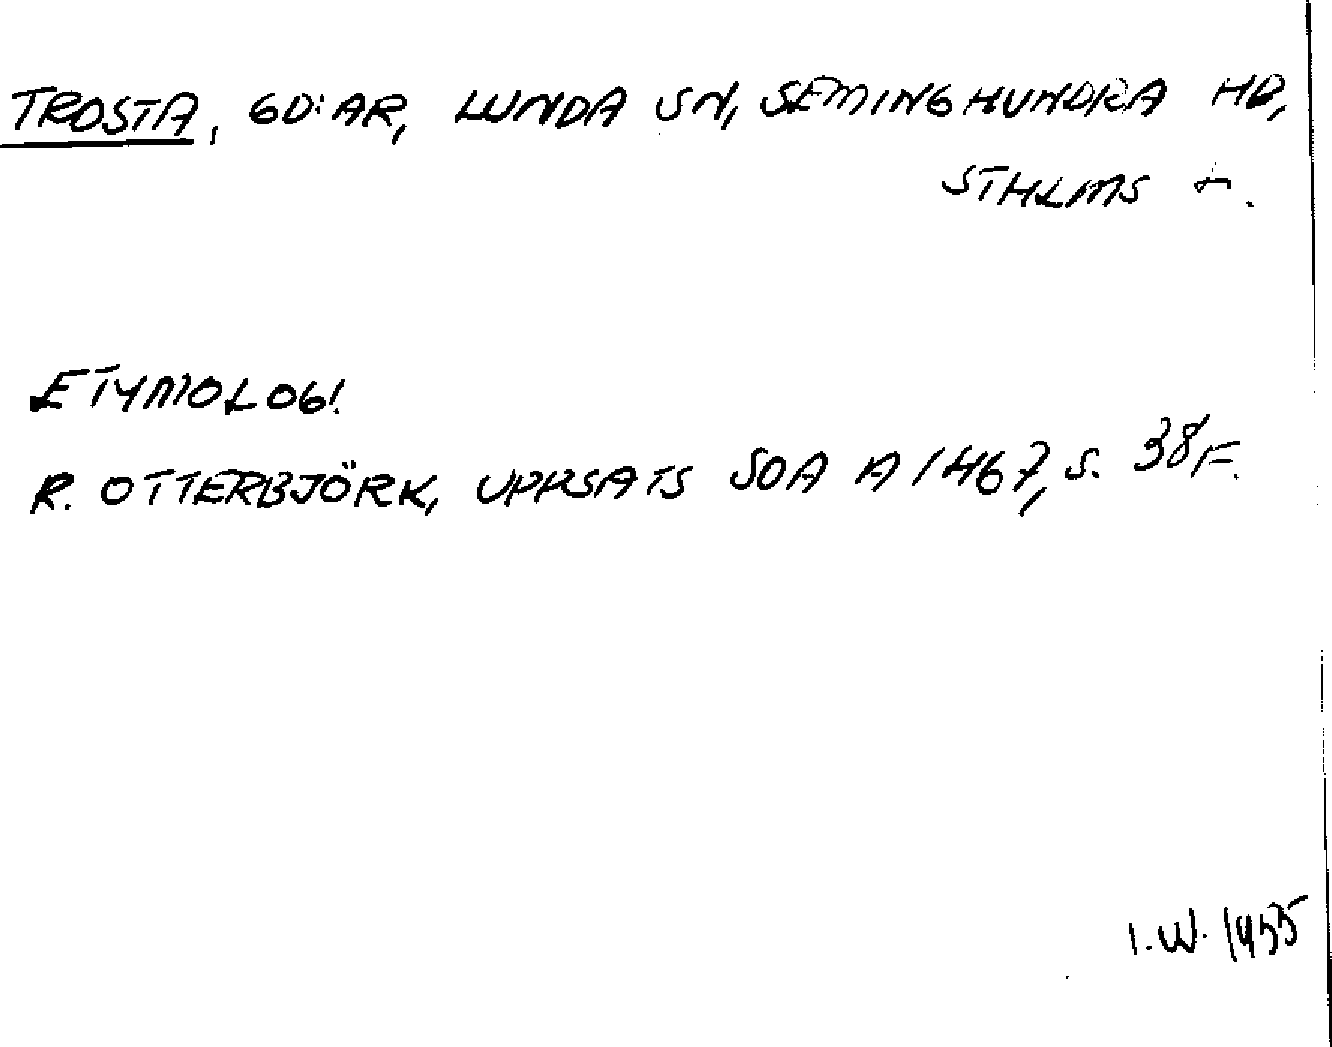 TROSTA, GD:AR, LUNDA SN, SEMINGHUNDRA HD,
STHLMS L.
ETYMOLOGI.
R. OTTERBJÖRK, UPPSATS SOA A 1467, S. 38 F.
I.W. 1955